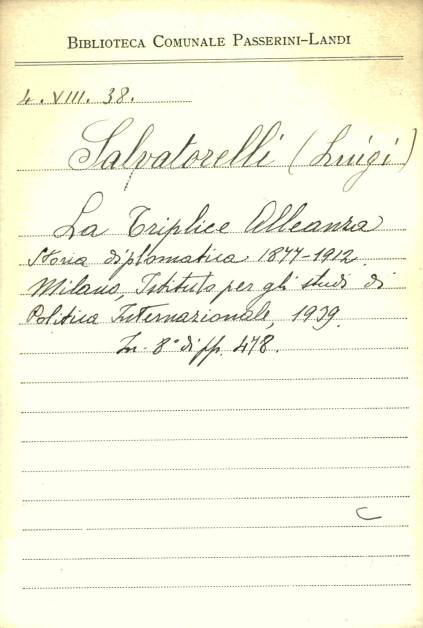 BIBLIOTECA COMUNALE PASSERINI-LANDI
4. VIII. 38.
Salvatorelli (Luigi)
La Triplice Alleanza
Storia diplomatica 1877-1912.
Milano, Istituto per gli studi di
Politica Internazionale, 1939.
In-8° di pp. 478.
C